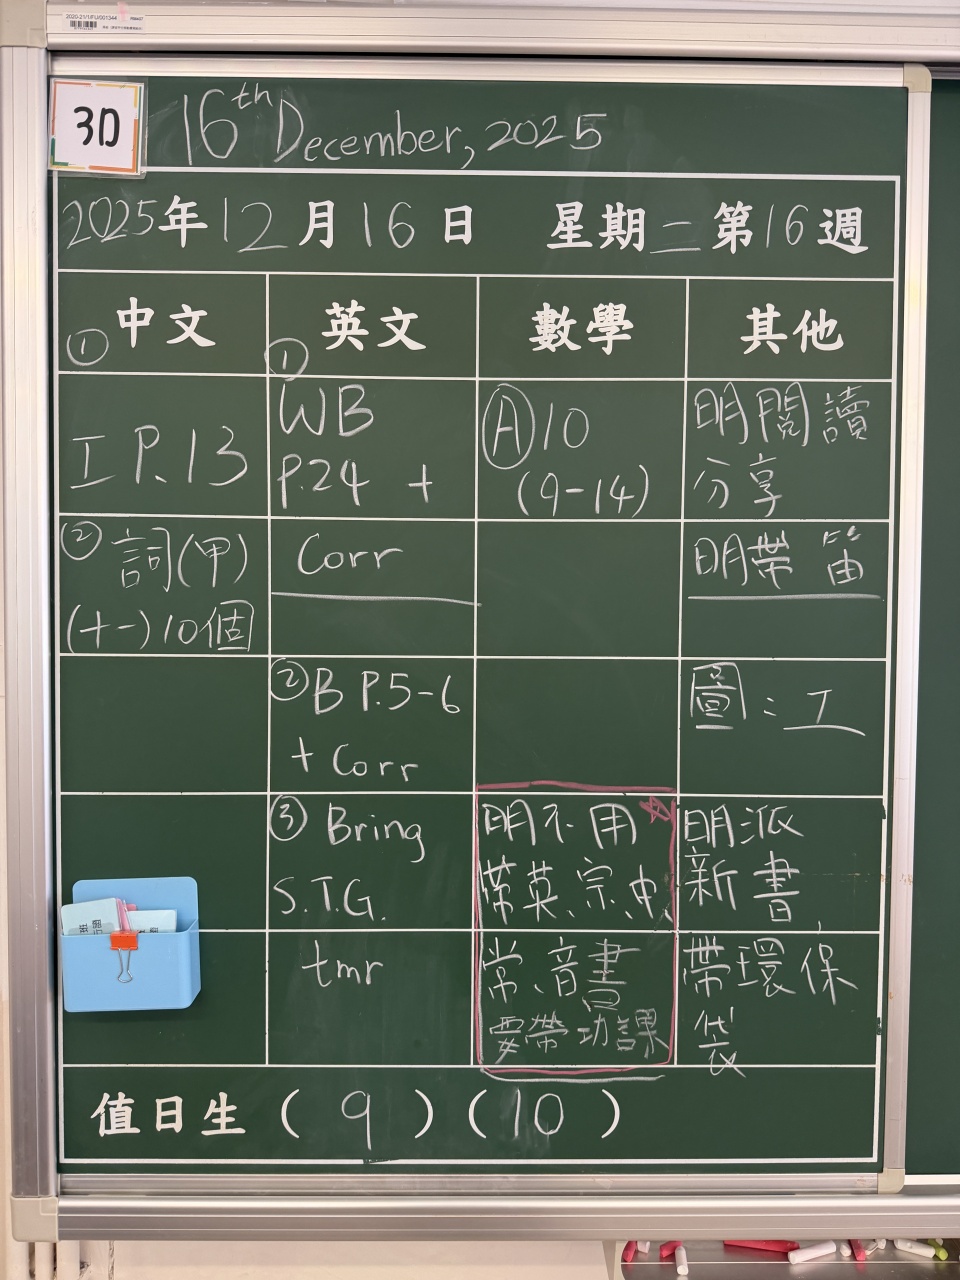 2020-21/1/FU/001344
3D
16th December, 2025
2025年12月16日 星期二第16週
中文
①
I P.13
② 詞(甲)
(十一)10個
英文
①
WB
P.24 +
Corr
② B P.5-6
+ Corr
③ Bring
S.T.G.
tmr
數學
Ⓐ10
(9-14)
明不用
帶英、宗、中、
常、音書
要帶功課
其他
明閱讀
分享
明帶笛
圖:工
明派
新書,
帶環保
袋
值日生(9)(10)